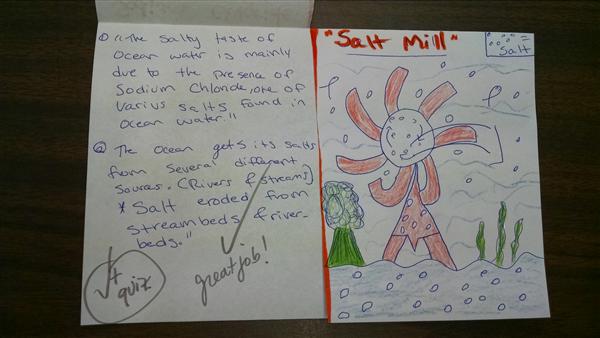 ① "The salty taste of
ocean water is mainly
due to the presence of
Sodium Chloride, one of
varius salts found in
ocean water."
② The ocean gets its salts
from several different
sources. (Rivers & streams)
* Salt eroded from
streambeds & river-
beds."
✓+
quiz
great job!
"Salt Mill"
= Salt